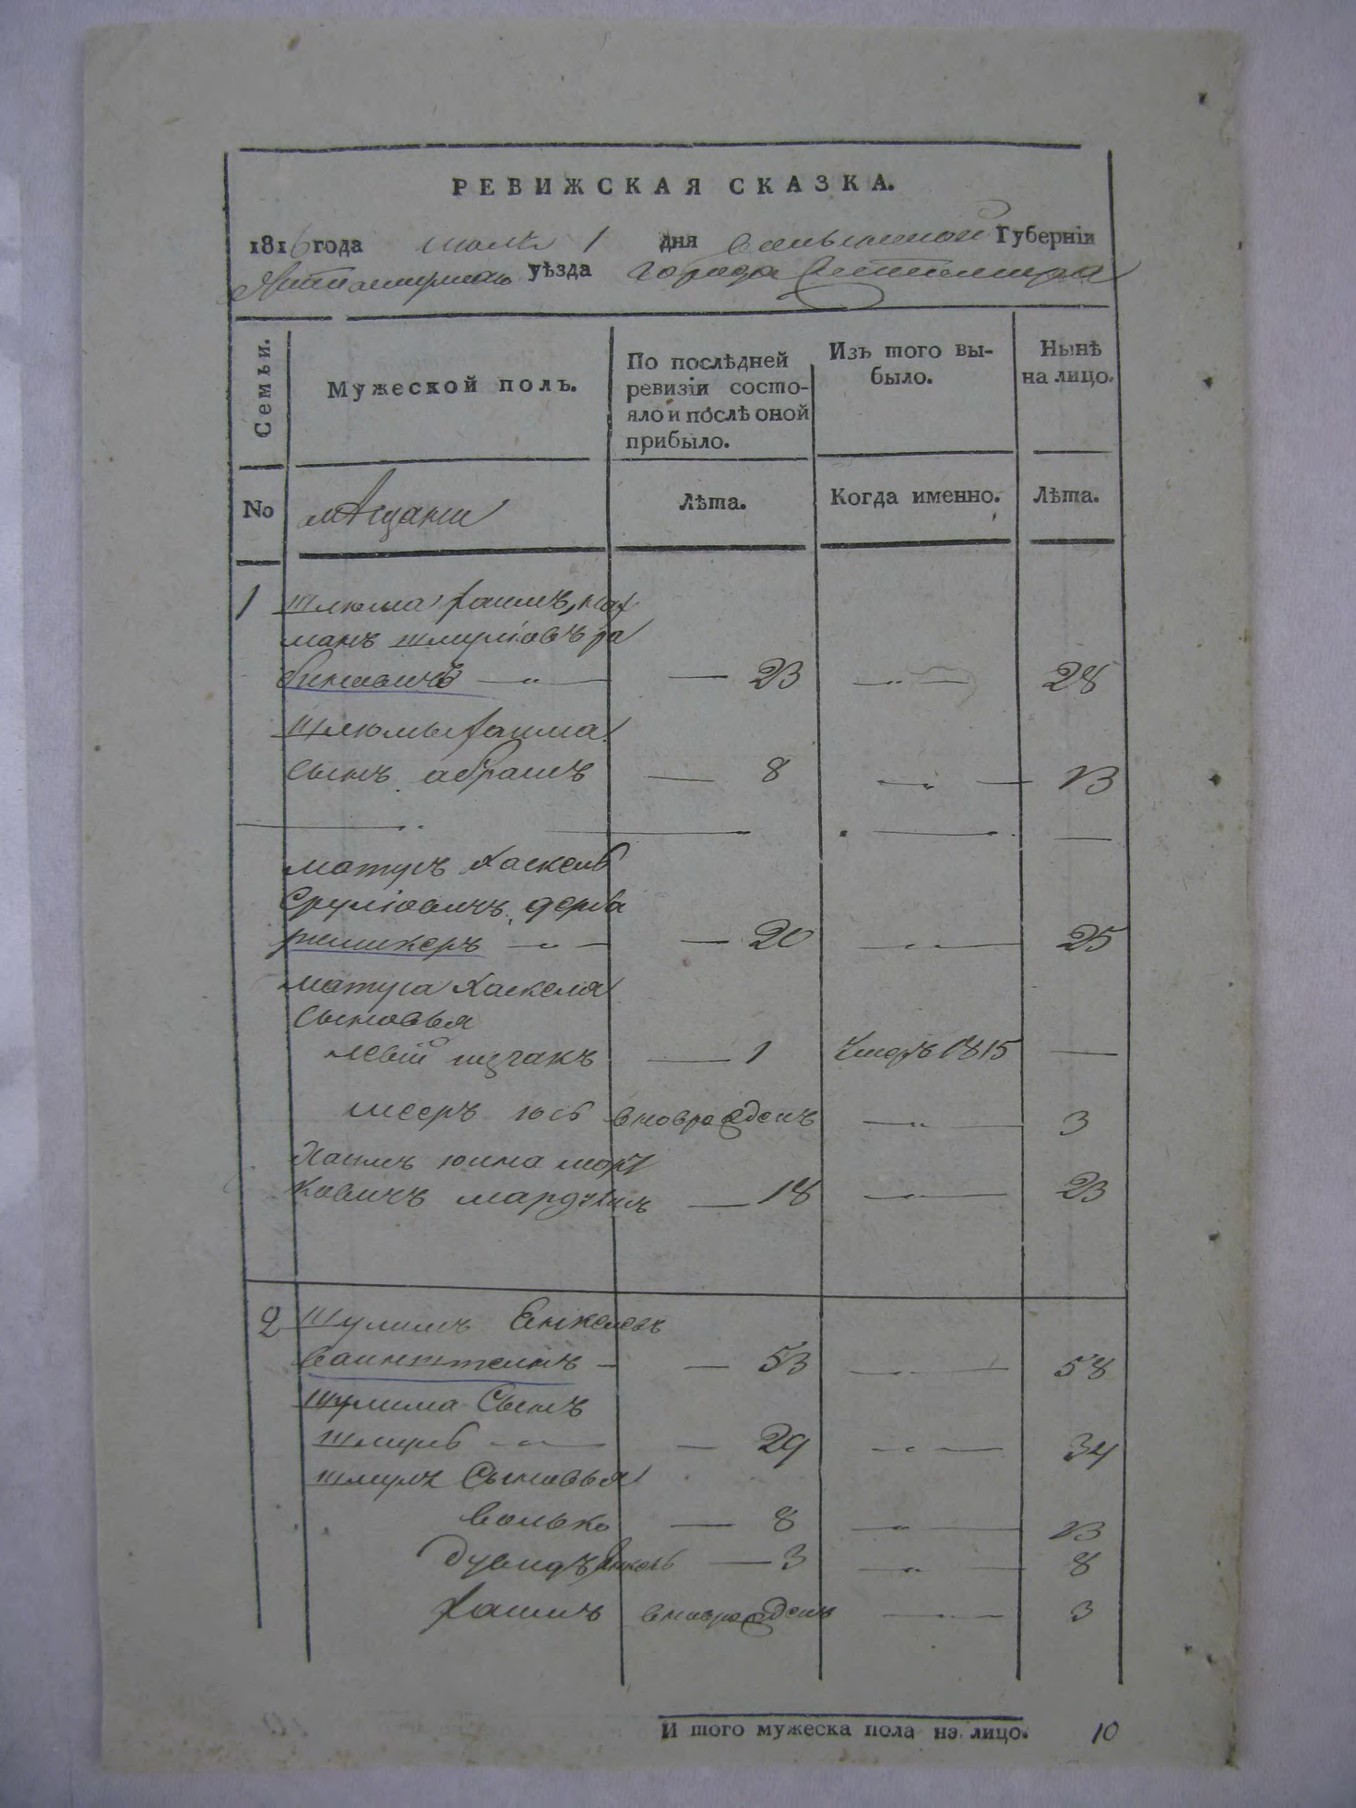 РЕВИЖСКАЯ СКАЗКА.
1816 года июля 1 дня Волынской Губернїи
уѣзда города
Семьи.
Мужеской полъ.
По послѣдней ревизїи состо-
яло и послѣ оной прибыло.
Изъ того вы-
было.
Нынѣ
на лицо.
No мѣщане Лѣта. Когда именно. Лѣта.
1 Шлюма Хаимъ, Нах
манъ Шмулїовъ ра
биновичъ — 23 — 28
Шлюмы Хаима
сынъ абрамъ — 8 — 13
Матусъ Хаскель
Срулїовичъ, дерба
ремикеръ — 20 — 25
Матуса Хаскеля
Сыновья
Левїй ицзакъ — 1 Умеръ 1815 —
Мееръ Іось вноврожденъ — 3
Хаимъ Юина Морт
ковичъ — 18 — 23
2 Шулимъ Енкелевъ
Ваинштеинъ — 53 — 58
Шулима Сынъ
Шмуль — 29 — 34
Шмуля Сыновья
Волько — 8 — 13
Дувидъ Янкель — 3 — 8
Хаимъ вноврожденъ — 3
И того мужеска пола на лицо. 10